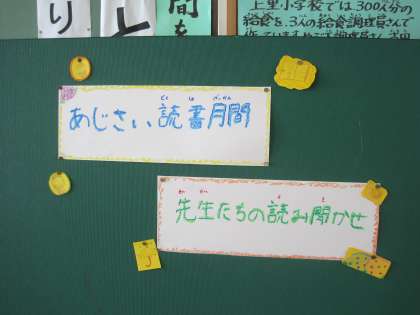 り
間を
上里小学校では300人分の
給食を、3人の給食調理員さんで
あじさい読書月間
どくしょげっかん
先生たちの読み聞かせ
せんせい
よ
き
J